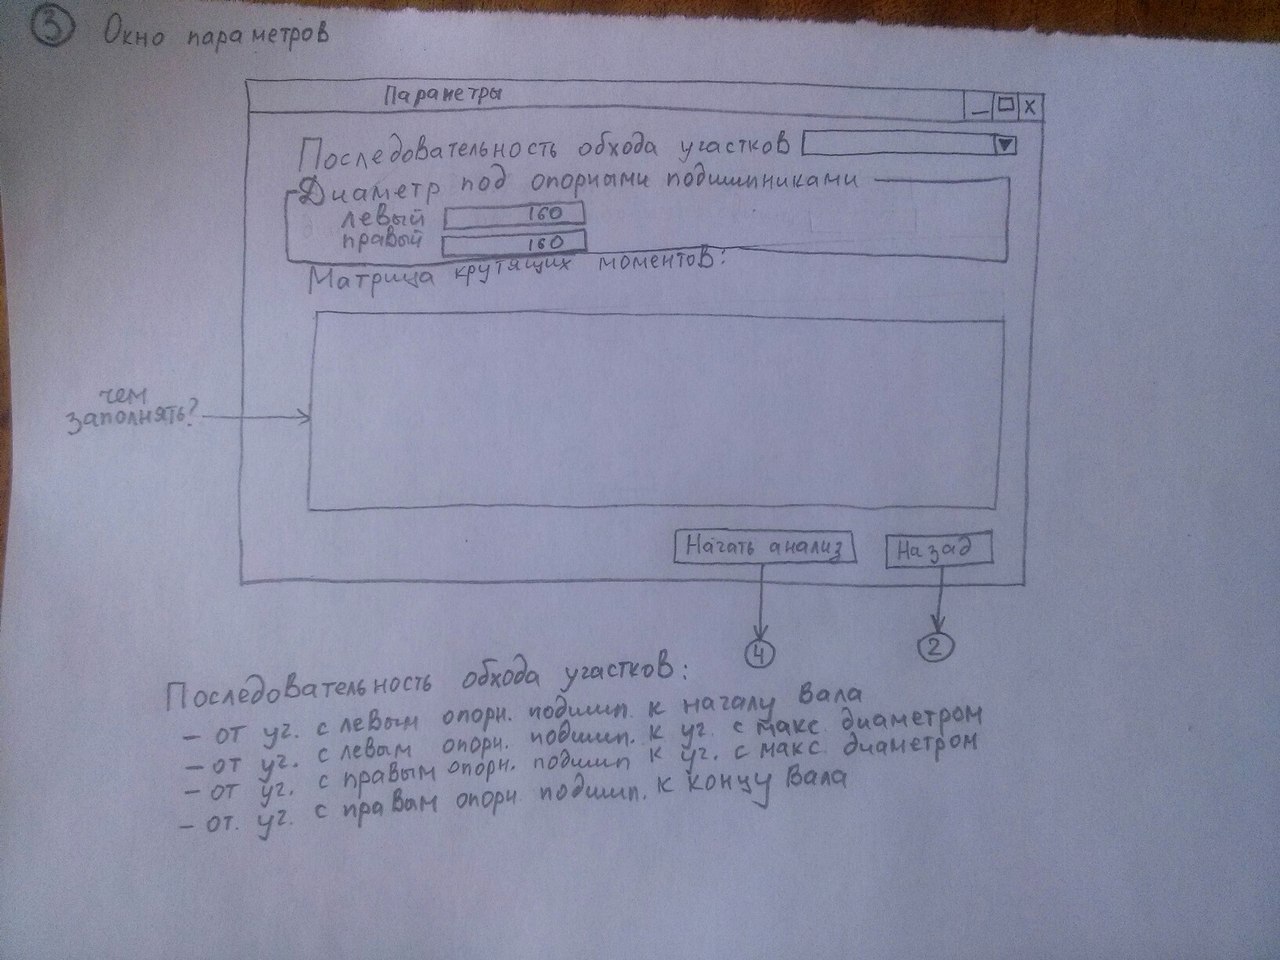 3 Окно параметров
Параметры _ X
Последовательность обхода участков
Диаметр под опорными подшипниками
левый 160
правый 160
Матрица крутящих моментов:
чем
заполнять?
Начать анализ Назад
4 2
Последовательность обхода участков:
- от уч. с левым опорн. подшип. к началу вала
- от уч. с левым опорн. подшип. к уч. с макс. диаметром
- от уч. с правым опорн. подшип к уч. с макс. диаметром
- от. уч. с правым опорн подшип. к концу вала